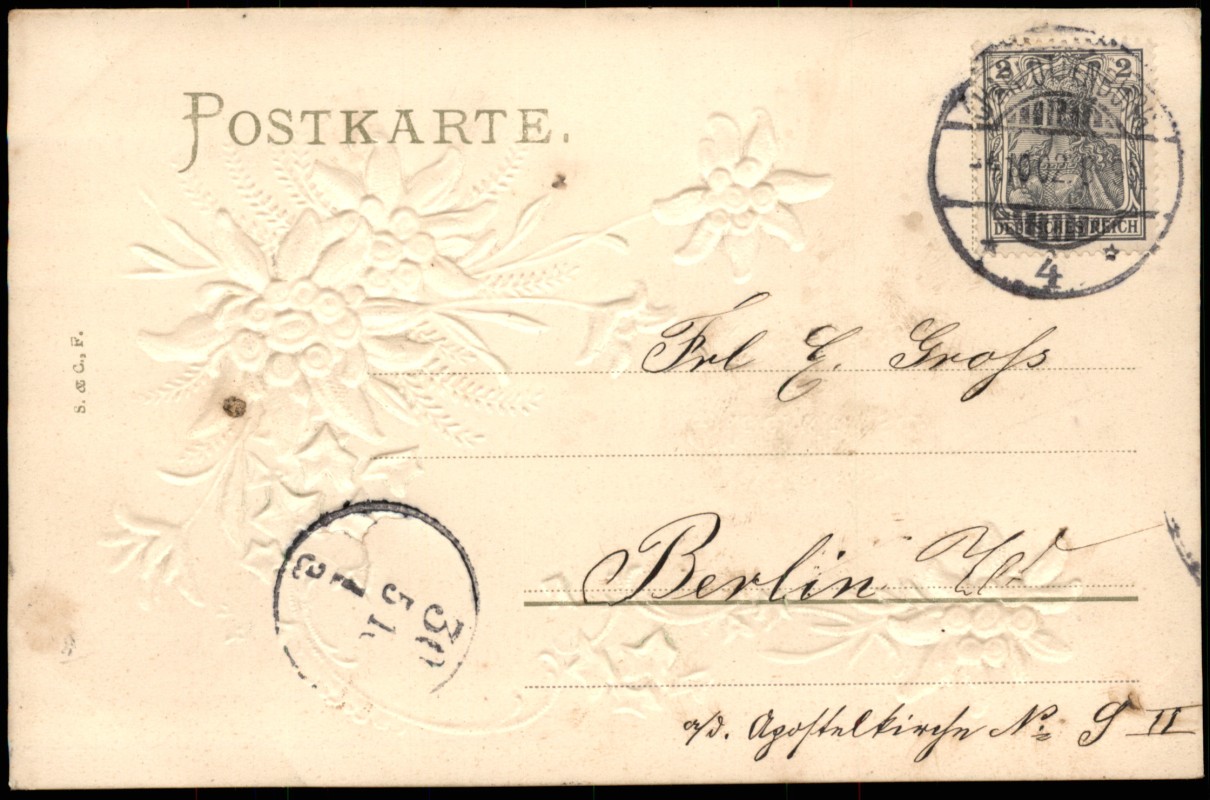 POSTKARTE.
2 2
DEUTSCHES REICH
10 02
4
S. & C., F.
Frl E. Groß
Berlin W
a/d. Apostelkirche No. 9 II